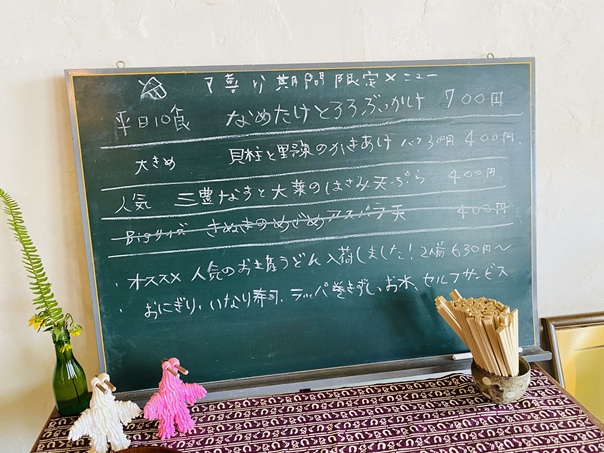 期間限定メニュー
平日10食 なめたけとろろぶっかけ 700円
大きめ 貝柱と野菜のかきあげ ハーフ300円 400円
人気 三豊なすと大葉のはさみ天ぷら 400円
Bigサイズ きぬさやのめざめアスパラ天 400円
・オススメ 人気のお土産うどん入荷しました! 2人前 630円〜
・おにぎり、いなり寿司、ラッパ巻きずし、お水、セルフサービス